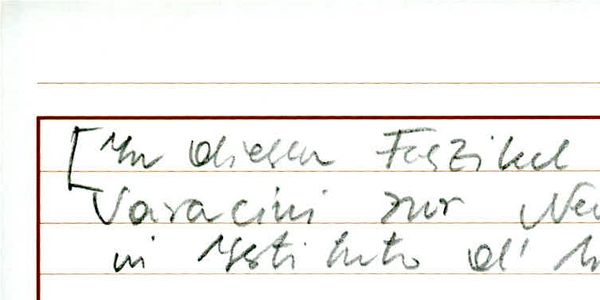 [In diesem Faszikel
Saracini zur Ne
in Istituto d'